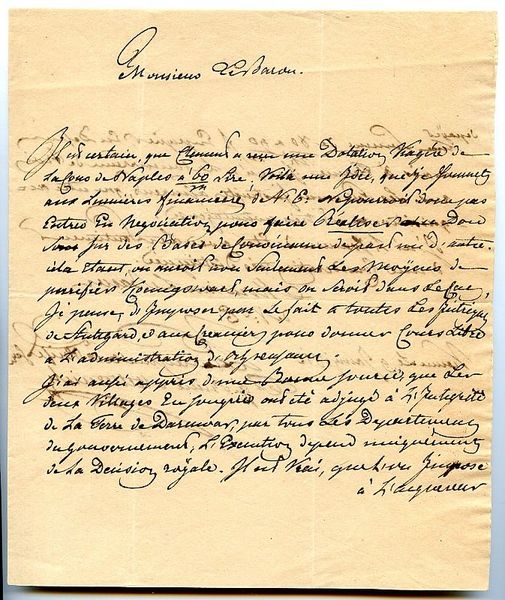 Monsieur Le Baron.
Il est certain, que Clement a reçu une Dotation Viagère de
La Cour de Naples à 60 m, Voilà une Idée, que je soumets
aux Lumières financières de V. E. Ne pourroit on pas
Entrer En Negociation pour faire Realiser Don
Sur des Bases de Convenance de part et d'autre
cela étant, on auroit non Seulement Les Moyens de
purifier Königswart, mais on Seroit dans Le Cas,
de par le fait à toutes Les
de Stuttgard, et aux Creanciers, pour donner Cours Libre
à L'administration d'Ochsenhausen.
J'ai aussi appris de une Bonne Source, que Les
deux Villages En ont été adjugé à L'Integrité
de La Terre de Daruwar, par tous Les Departements
du Gouvernement, L'Execution depend uniquement
de La Decision royale. Il est Vrai, que
à L'acquereur